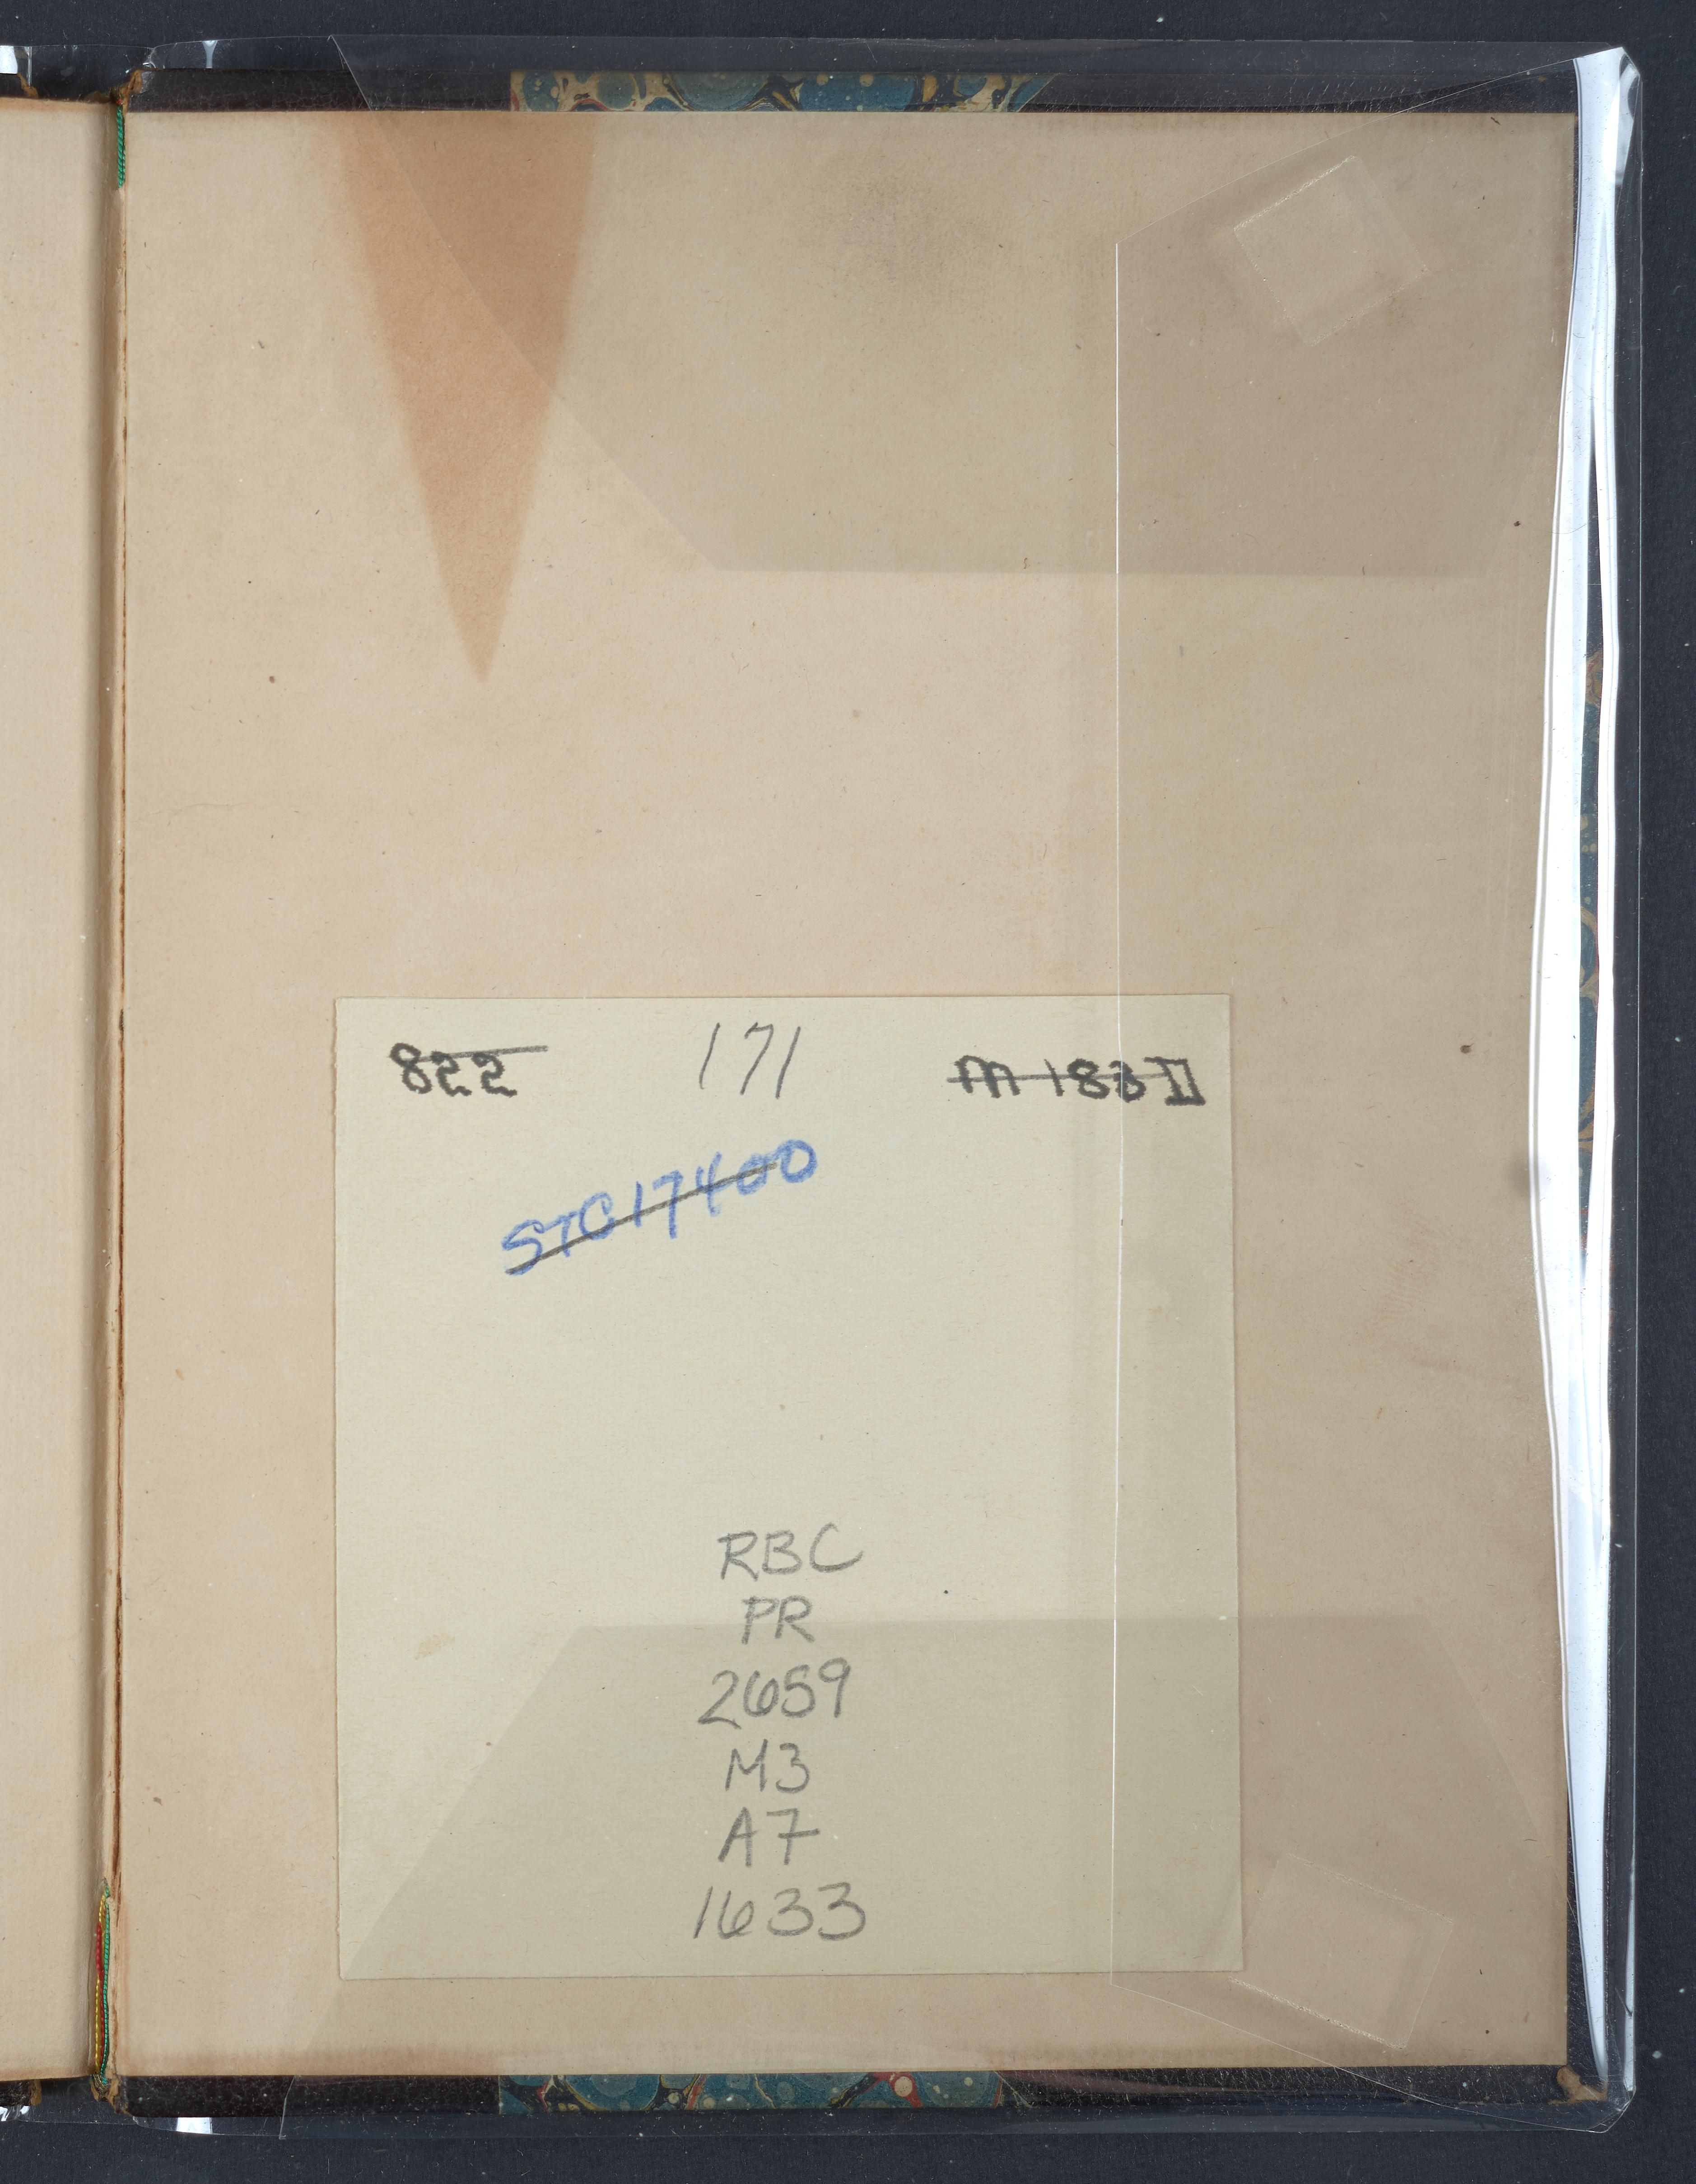 822 171 M 183 D
STC17400
RBC
PR
2659
M3
A7
1633